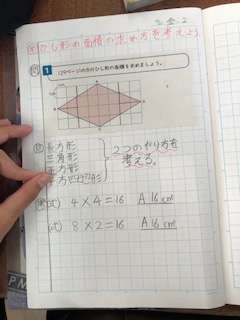 ひし形の面積の求め方を考えよう
問
1 129ページの⑦のひし形の面積を求めましょう。
長方形
三角形
正方形
平行四辺形
2つのやり方を
考える。
式) 4×4=16 A 16cm²
式) 8×2=16 A 16cm²